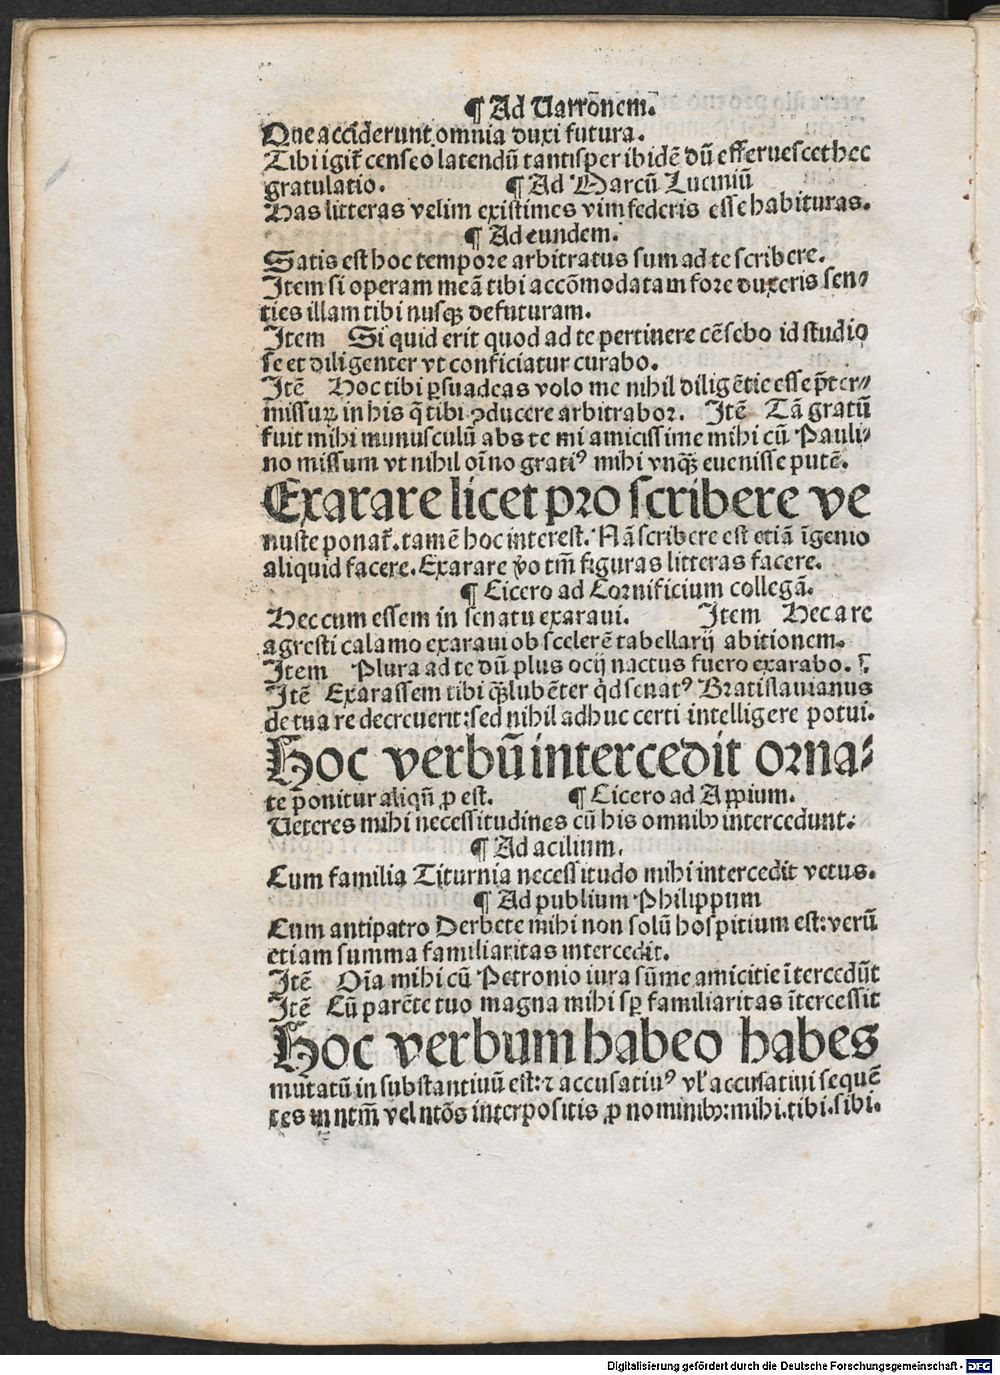 ¶ Ad Uarrōnem.
Que acciderunt omnia duxi futura.
Tibi igit̃ censeo latendū tantisper ibidē dū efferuescet hec
gratulatio. ¶ Ad Marcū Luciniū
Has litteras velim existimes vim federis esse habituras.
¶ Ad eundem.
Satis est hoc tempore arbitratus sum ad te scribere.
Item si operam meā tibi accōmodatam fore duxeris sen⸗
ties illam tibi nusqꝫ defuturam.
Item Si quid erit quod ad te pertinere cēsebo id studio
se et diligenter vt conficiatur curabo.
Itē Hoc tibi ꝑsuadeas volo me nihil diligētie esse p̄ter⸗
missuꝝ in his q̄ tibi ꝯducere arbitrabor. Itē Tā gratū
fuit mihi munusculū abs te mi amicissime mihi cū Pauli⸗
no missum vt nihil oīno gratiꝰ mihi vnqꝫ euenisse putē.
Exarare licet pro scribere ve
nuste ponat̃. tamē hoc interest. Nā scribere est etiā īgenio
aliquid facere. Exarare v̊o tm̄ figuras litteras facere.
¶ Cicero ad Cornificium collegā.
Hec cum essem in senatu exaraui. Item Hec are
agresti calamo exaraui ob scelerē tabellarij abitionem.
Item Plura ad te dū plus ocij nactus fuero exarabo.
Itē Exarassem tibi qꝫlubēter qd̓ senatꝰ Bratislauianus
de tua re decreuerit: sed nihil adhuc certi intelligere potui.
Hoc verbū intercedit orna⸗
te ponitur aliqñ ꝓ est. ¶ Cicero ad Appium.
Ueteres mihi necessitudines cū his omnibꝫ intercedunt.
¶ Ad acilium.
Cum familia Titurnia necessitudo mihi intercedit vetus.
¶ Ad publium Philippum
Cum antipatro Derbete mihi non solū hospitium est: verū
etiam summa familiaritas intercedit.
Itē Oīa mihi cū Petronio iura sūme amicitie ītercedūt
Itē Cū parēte tuo magna mihi sꝑ familiaritas ītercessit
Hoc verbum habeo habes
mutatū in substantiuū est: ⁊ accusatiuꝰ vl̓ accusatiui sequē
tes in ntm̄ vel ntōs interpositis ꝓnominibꝫ: mihi. tibi. sibi.
Digitalisierung gefördert durch die Deutsche Forschungsgemeinschaft - DFG